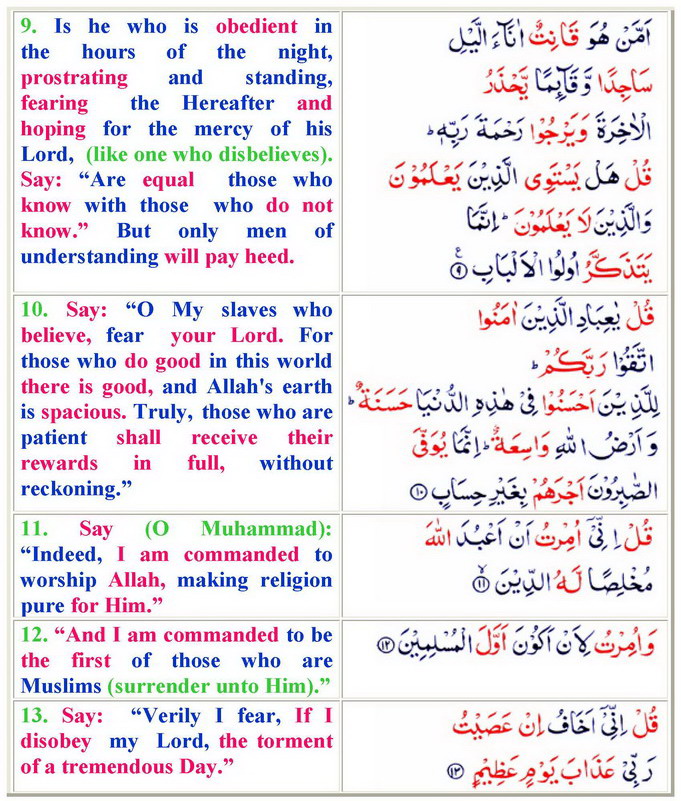 9. Is he who is obedient in
the hours of the night,
prostrating and standing,
fearing the Hereafter and
hoping for the mercy of his
Lord, (like one who disbelieves).
Say: “Are equal those who
know with those who do not
know.” But only men of
understanding will pay heed.
اَمَّنْ هُوَ قَانِتٌ اٰنَآءَ الَّيْلِ
سَاجِدًا وَّقَآئِمًا يَّحْذَرُ
الْاٰخِرَةَ وَيَرْجُوْا رَحْمَةَ رَبِّهٖ ؕ
قُلْ هَلْ يَسْتَوِى الَّذِيْنَ يَعْلَمُوْنَ
وَالَّذِيْنَ لَا يَعْلَمُوْنَ ؕ اِنَّمَا
يَتَذَكَّرُ اُولُوا الْاَلْبَابِ ۹
10. Say: “O My slaves who
believe, fear your Lord. For
those who do good in this world
there is good, and Allah's earth
is spacious. Truly, those who are
patient shall receive their
rewards in full, without
reckoning.”
قُلْ يٰعِبَادِ الَّذِيْنَ اٰمَنُوا
اتَّقُوْا رَبَّكُمْ ؕ
لِلَّذِيْنَ اَحْسَنُوْا فِىْ هٰذِهِ الدُّنْيَا حَسَنَةٌ ؕ
وَ اَرْضُ اللّٰهِ وَاسِعَةٌ ؕ اِنَّمَا يُوَفَّى
الصّٰبِرُوْنَ اَجْرَهُمْ بِغَيْرِ حِسَابٍ ۱۰
11. Say (O Muhammad):
“Indeed, I am commanded to
worship Allah, making religion
pure for Him.”
قُلْ اِنِّىْٓ اُمِرْتُ اَنْ اَعْبُدَ اللّٰهَ
مُخْلِصًا لَّهُ الدِّيْنَ ۱۱
12. “And I am commanded to be
the first of those who are
Muslims (surrender unto Him).”
وَاُمِرْتُ لِاَنْ اَكُوْنَ اَوَّلَ الْمُسْلِمِيْنَ ۱۲
13. Say: “Verily I fear, If I
disobey my Lord, the torment
of a tremendous Day.”
قُلْ اِنِّىْٓ اَخَافُ اِنْ عَصَيْتُ
رَبِّىْ عَذَابَ يَوْمٍ عَظِيْمٍ ۱۳